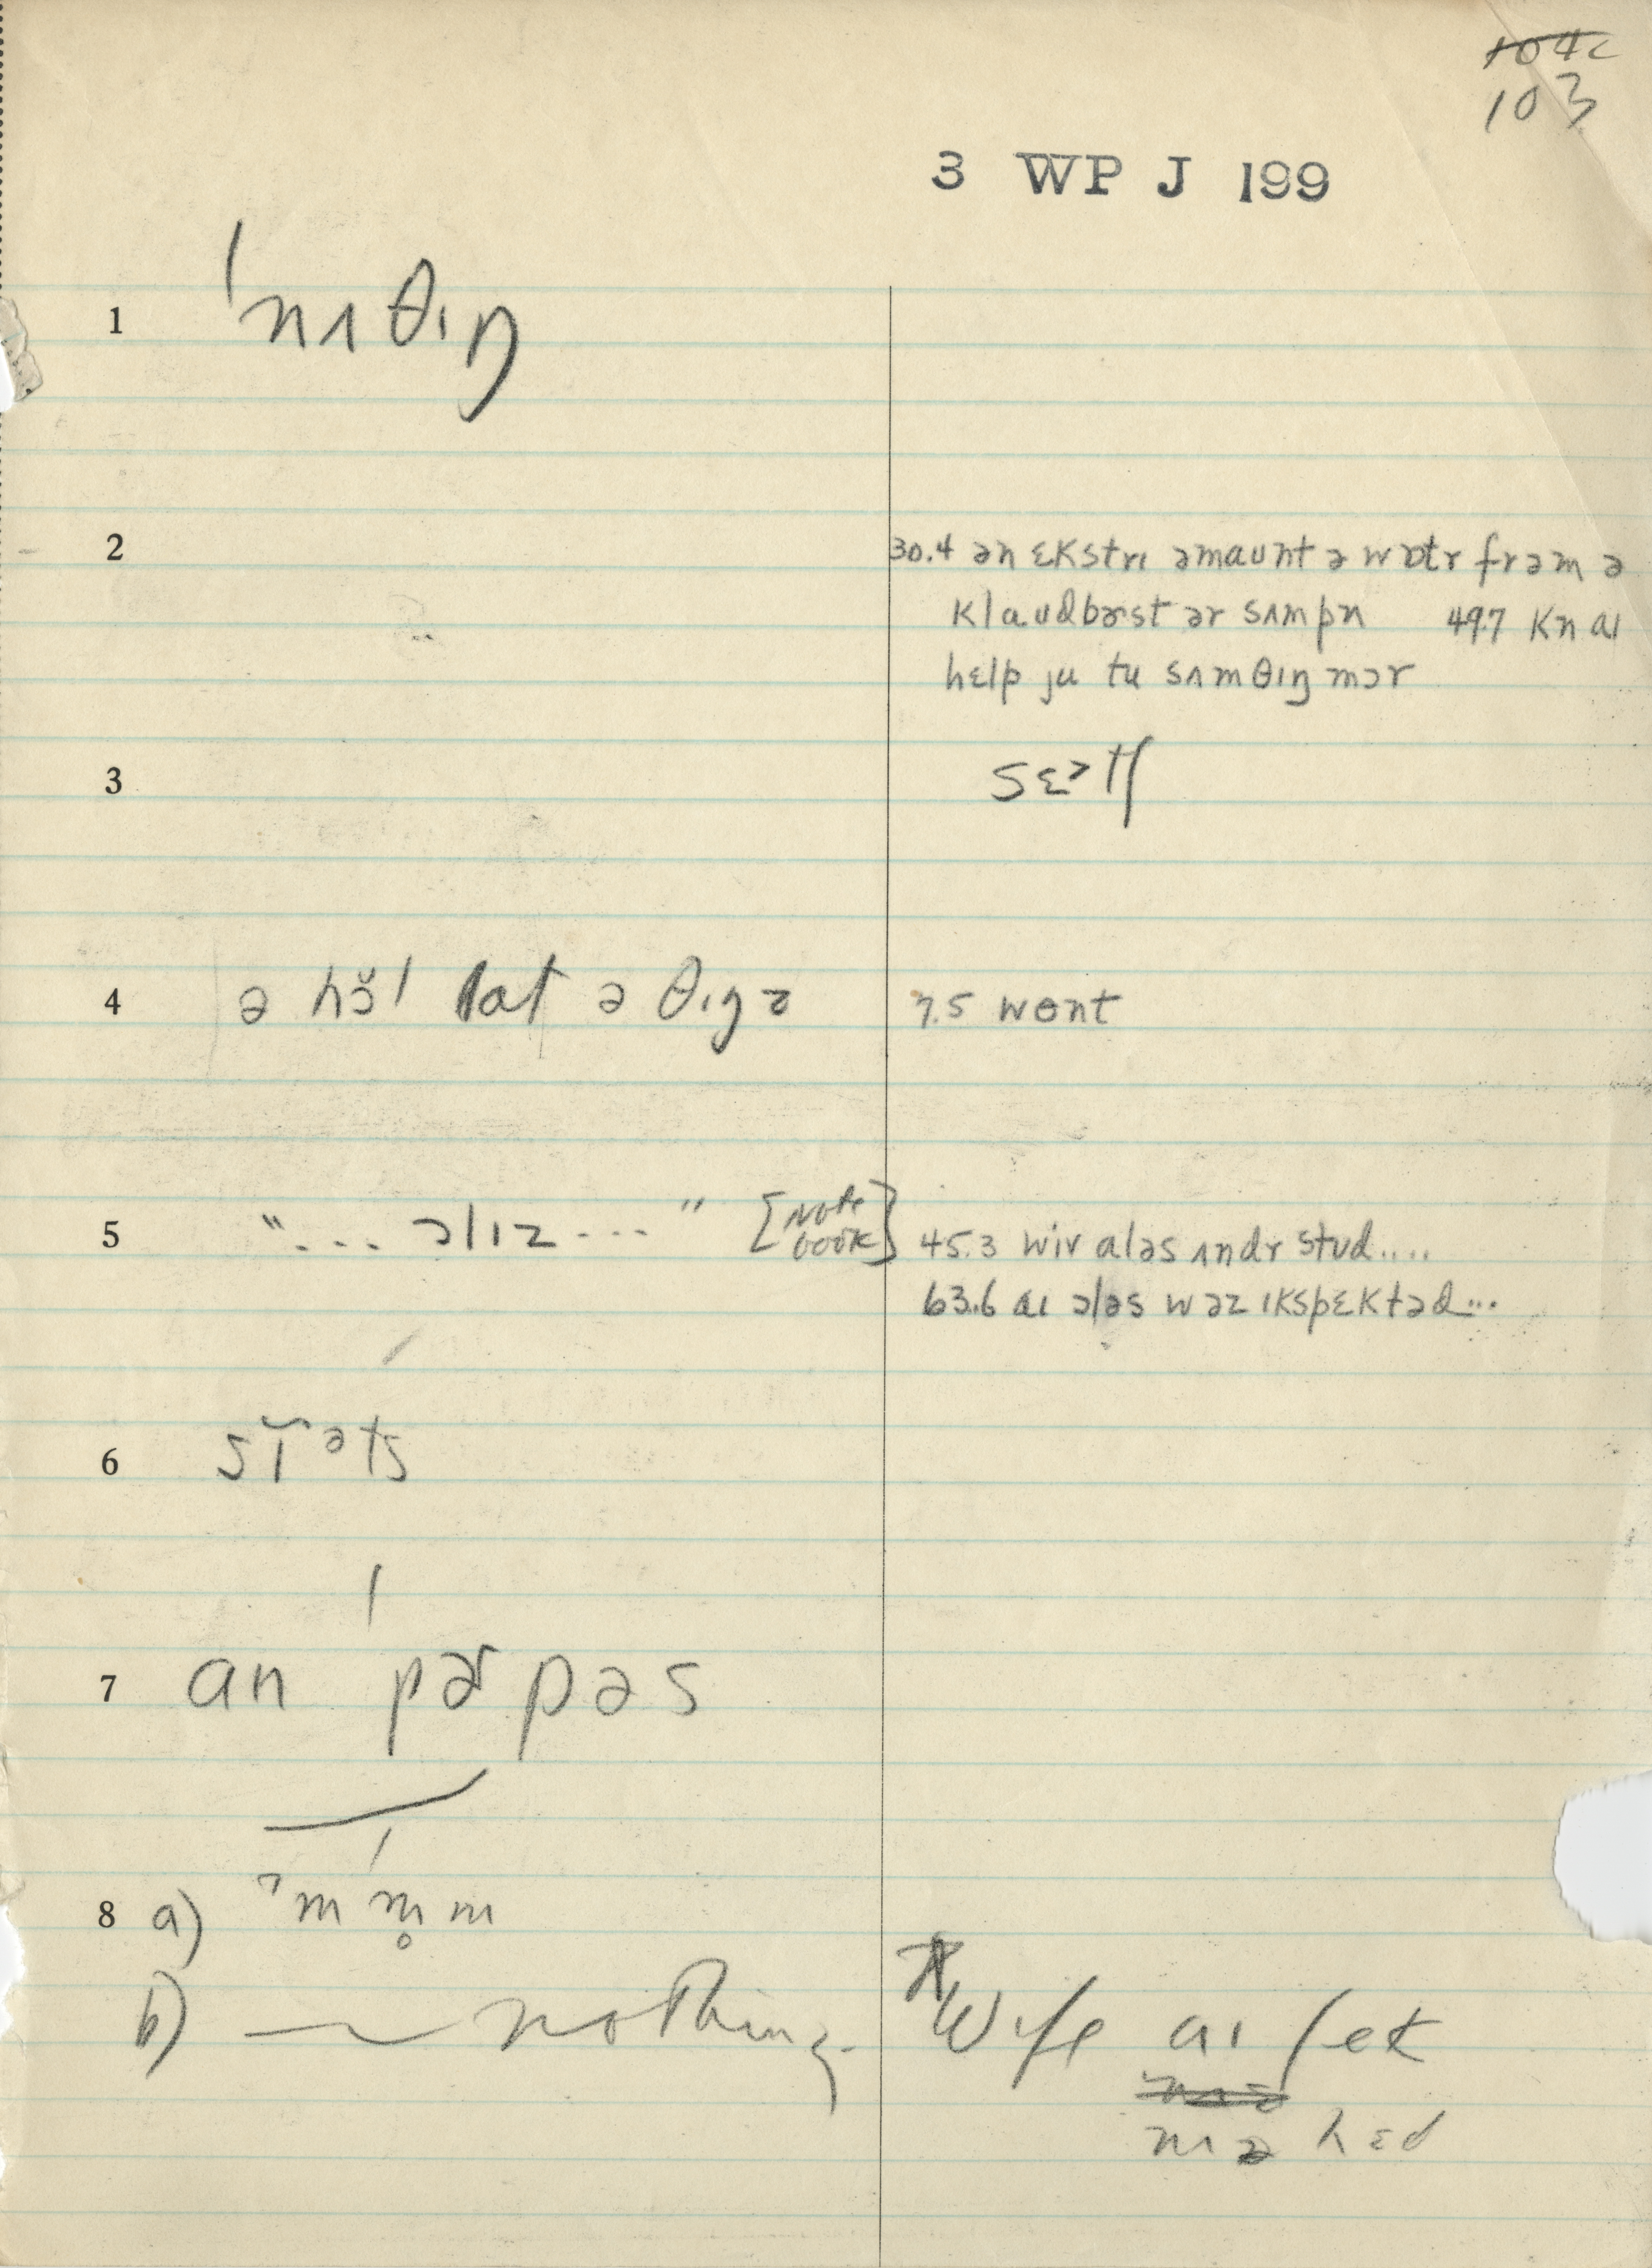 104c
103
3 WP J 199
1 ˈnʌθɪŋ
2 30.4 ən ɛkstrɪ əmaʊnt ə wɒtr frəm ə
klaʊdbɚst ər sʌmpn 49.7 kn aɪ
hɛlp ju tu sʌmθɪŋ mɔr
3
4 ə hɔ̆l lat ə θɪŋz 7.5 wɵnt
5 "... ɔlɪz ..." [Note book] 45.3 wiv aləs ʌndr stud....
63.6 aɪ ɔləs wəz ɪkspɛktəd...
6 sɪ̆ᵊts
7 an pɚpəs
8 a) ˀm m̥ m
b) — nothing. Wife aɪ ʃek
mɪ hɛd